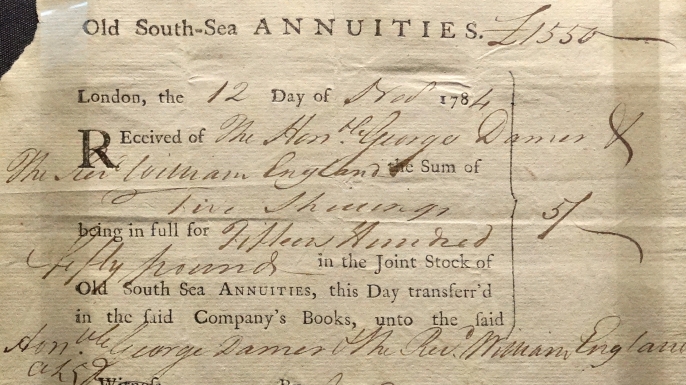 Old South-Sea ANNUITIES. £1550
London, the 12 Day of Nov 1784
REceived of The Honble George Damer &
The Revd William England the Sum of
Five Shillings 5/
being in full for Fifteen Hundred
fifty pounds in the Joint Stock of
Old South Sea ANNUITIES, this Day transferr'd
in the said Company's Books, unto the said
Honble George Damer & The Revd. William England
Witness